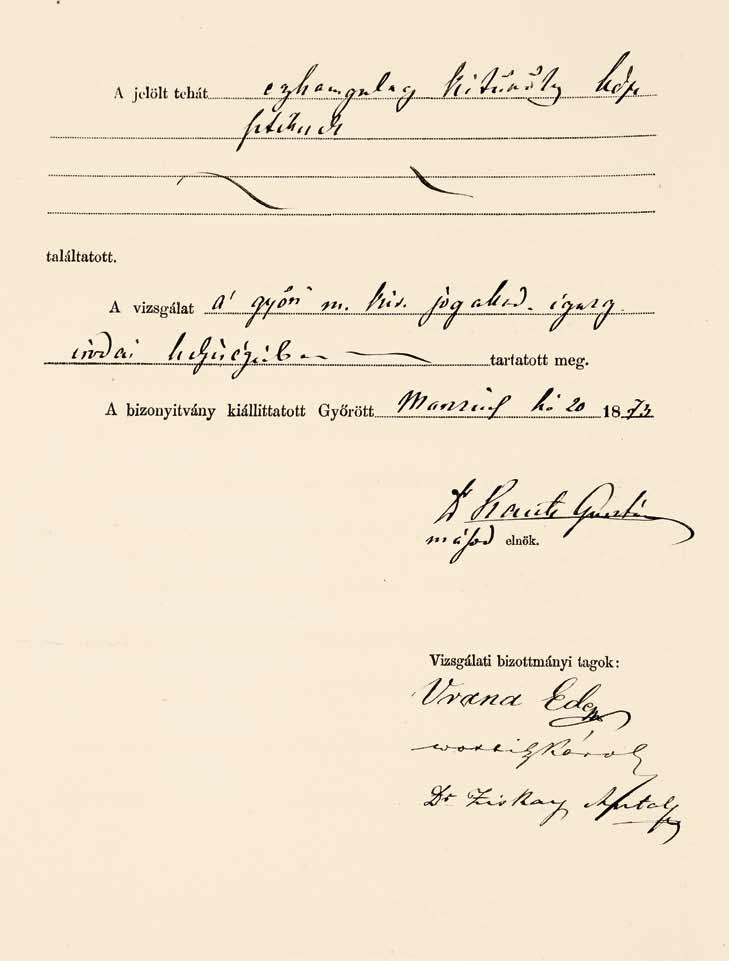 A jelölt tehát egyhangulag kitünőleg kép
zettnek
találtatott.
A vizsgálat a' győri m. kir. jogakad. igazg.
irodai helyiségében tartatott meg.
A bizonyitvány kiállittatott Győrött Marczius hó 20 1873
Dr Kautz Gusztáv
másod elnök.
Vizsgálati bizottmányi tagok:
Vrana Ede
Károly
Dr Ziskay Antal